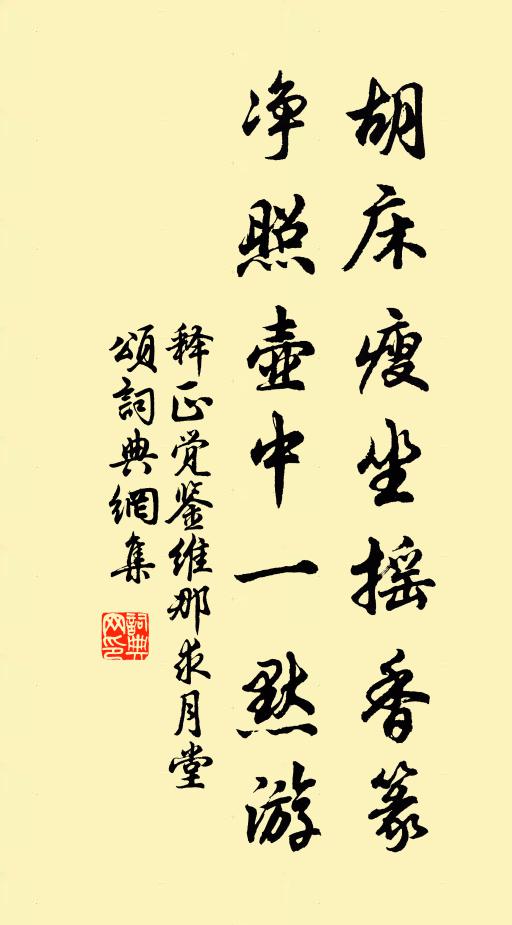 胡床瘦坐摇香篆
净照壶中一点游
释正觉鉴维那求月堂
颂词典網集
詞典网印